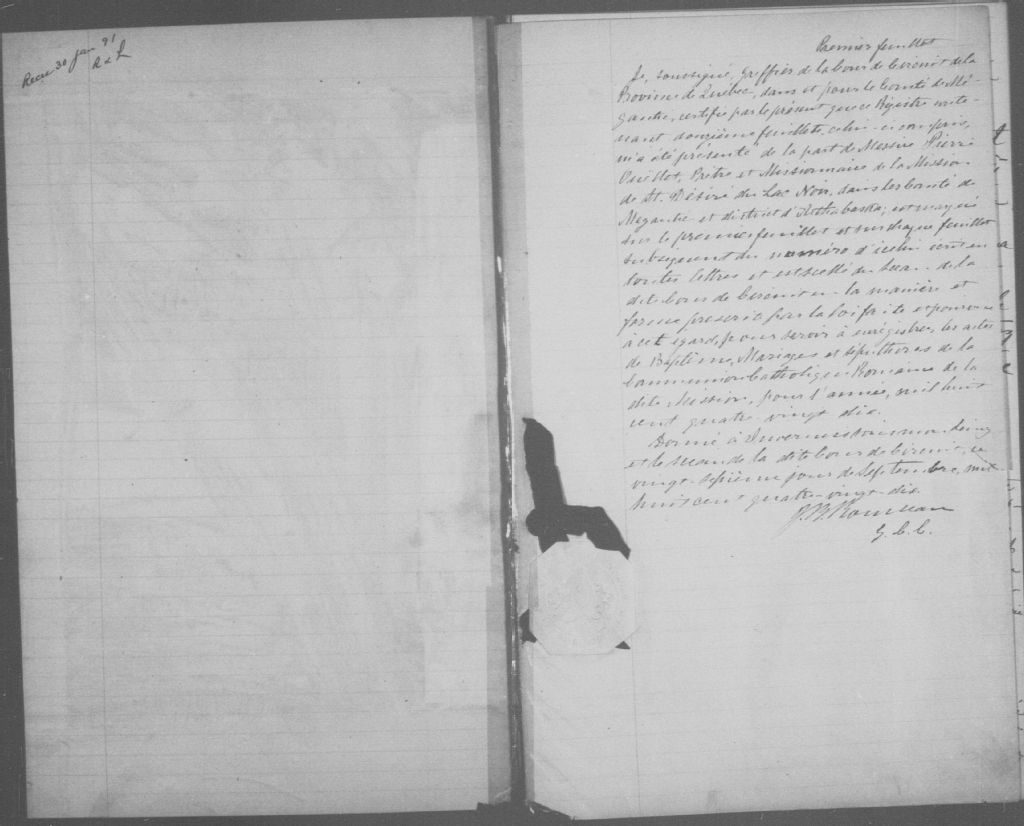 Recu 30 jan 91
R & L
Premier feuillet
Je, soussigné, Greffier de la Cour de Circuit de la
Province de Québec, dans et pour le Comté de Mé-
gantic, certifie par le présent que ce Régistre conte-
nant douzième feuillets, celui-ci compris,
m'a été présenté de la part de Messire Pierre
Ouellet, Prêtre et Missionnaire de la Mission
de St. Désiré du Lac Noir, dans les Comté de
Megantic et district d'Arthabaska, est marqué
sur le premier feuillet et sur chaque feuillet
subséquent du numéro d'icelui écrit en
toutes lettres et est scellé du Sceau de la
dite Cour de Circuit en la manière et
forme prescrit par la loi faite et pourvue
à cet égard, pour servir à enrégistrer les actes
de Baptême, Mariages et Sépultures de la
Communion Catholique Romaine de la
dite Mission, pour l'année, mil huit
cent quatre-vingt dix.
Donné à Inverness sous mon seing
et le Sceau de la dite Cour de Circuit, ce
vingt-sixième jour de Septembre, mil
huit cent quatre-vingt-dix.
Rousseau
G. C. C.